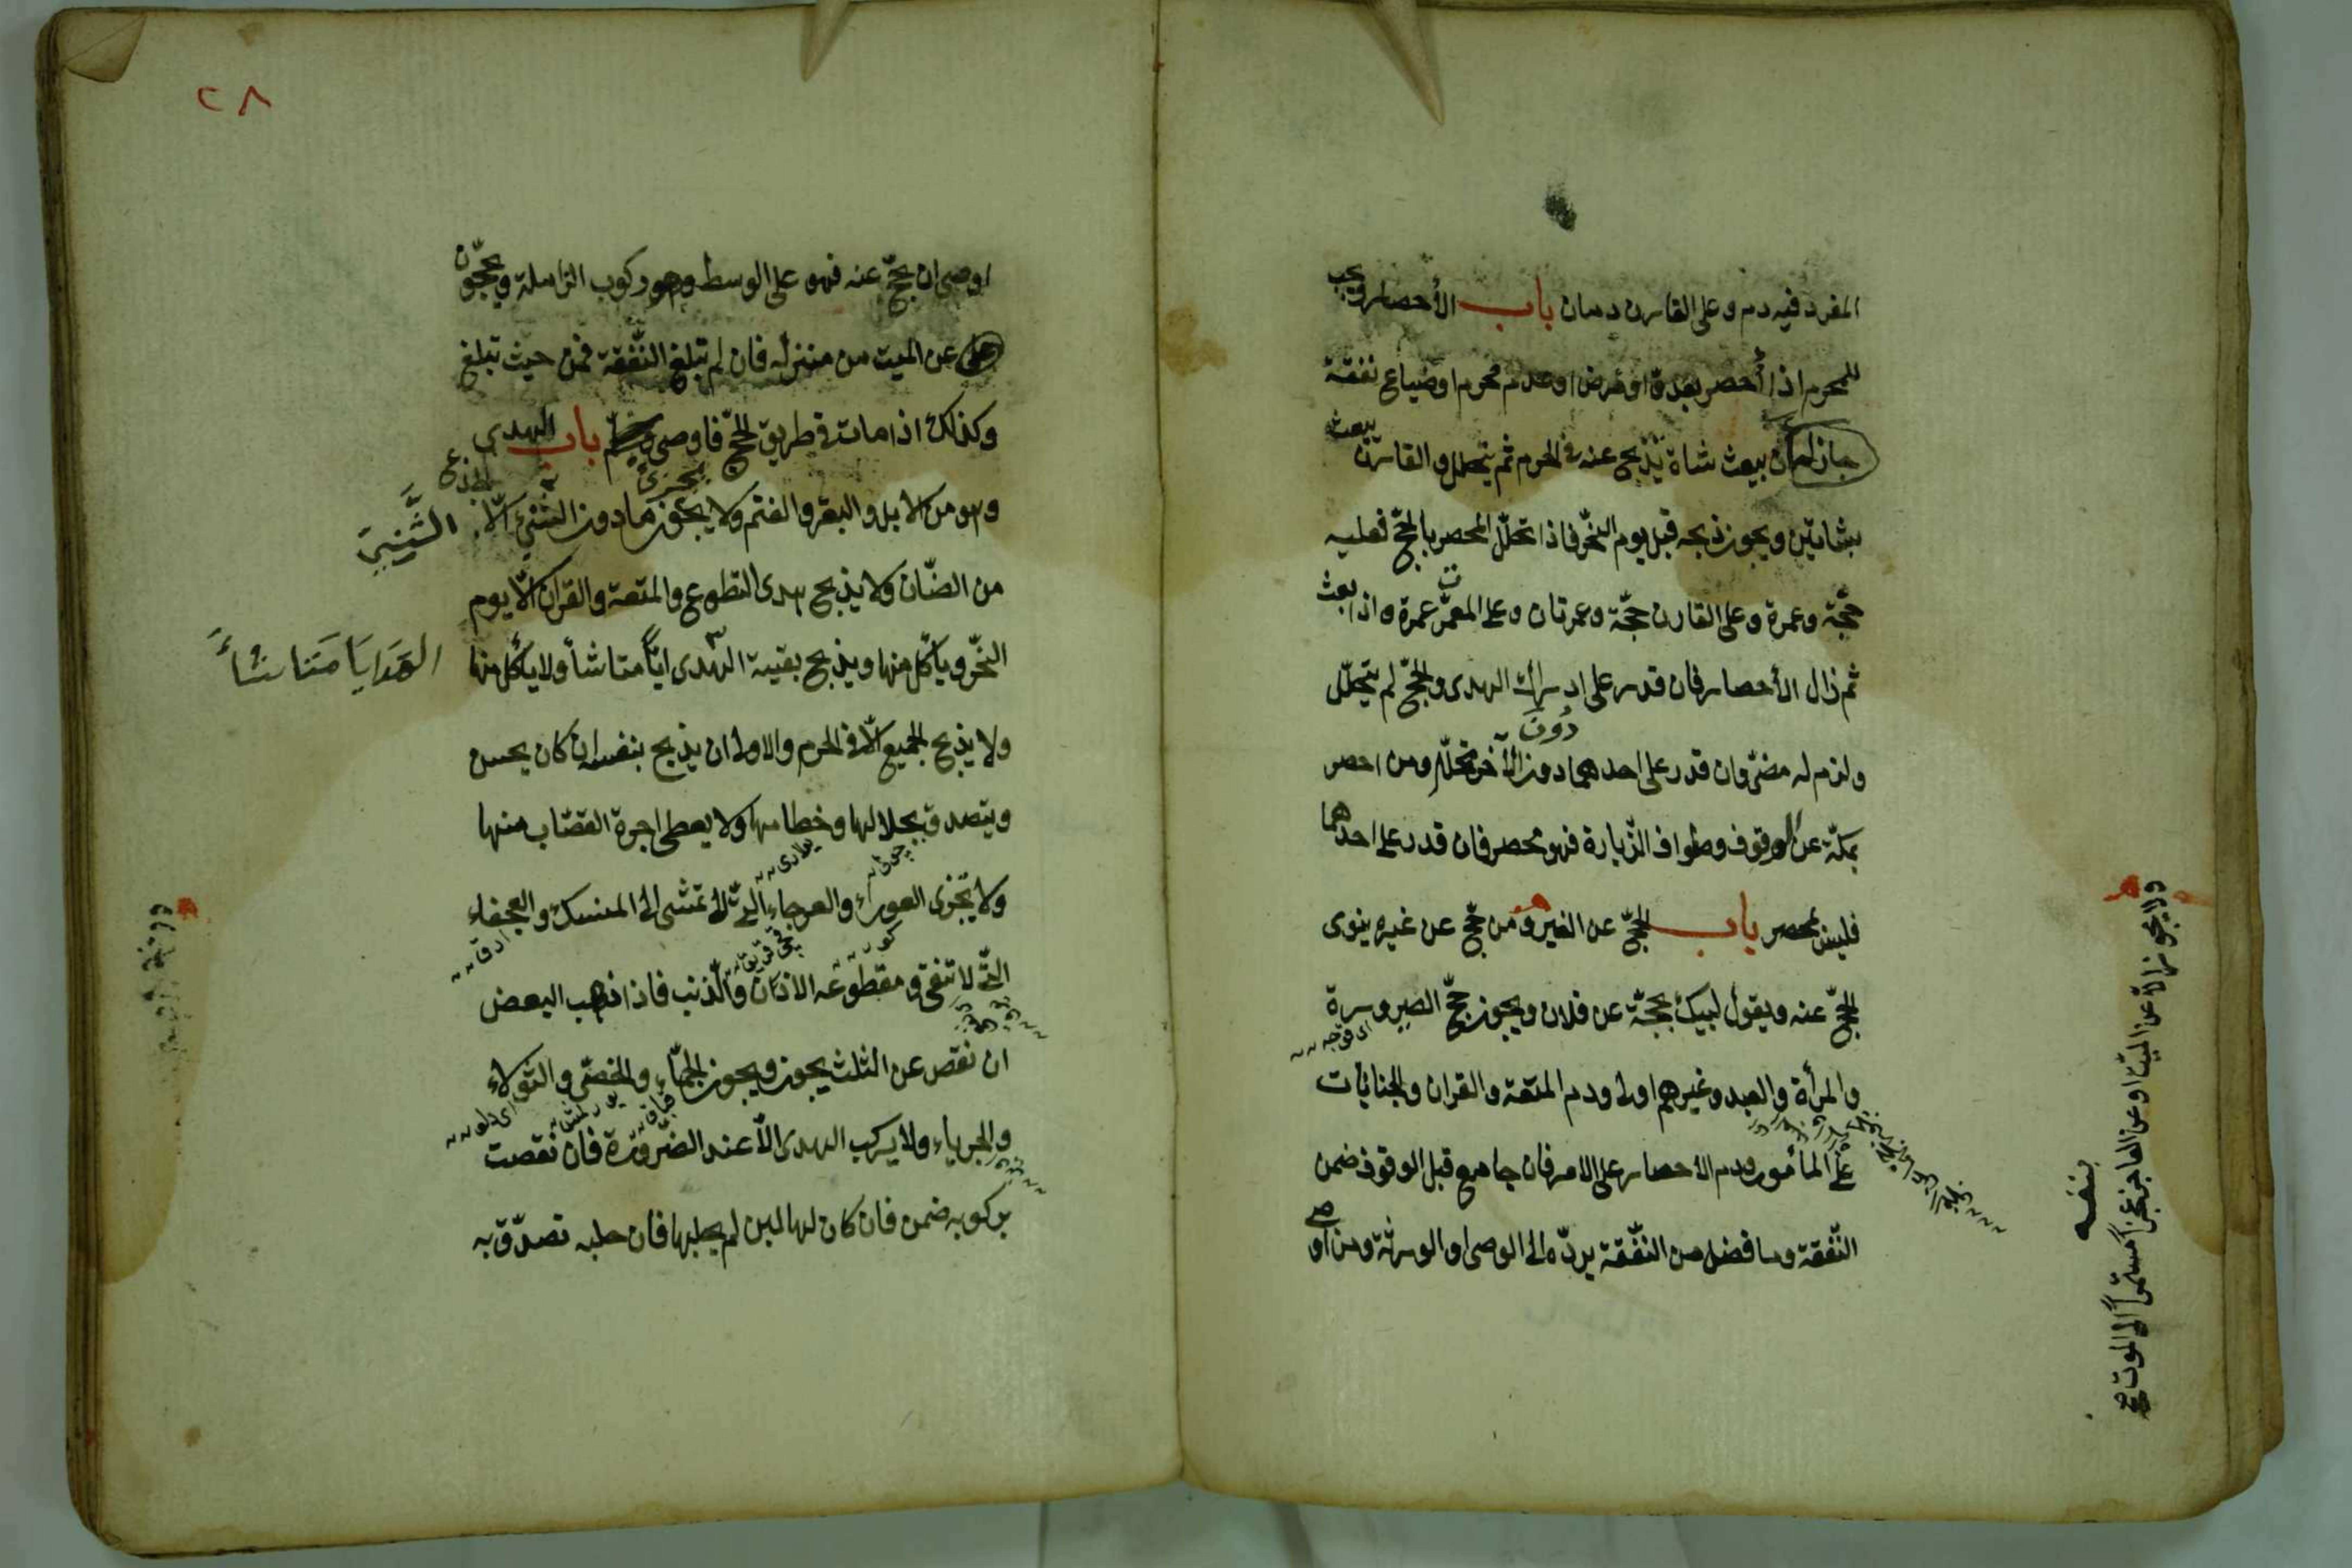 المفرد فيه دم وعلى القارن دمان باب الأحصار ويجب
للمحرم اذا أحصر بعدوّ او مرض او عدم محرم او ضياع نفقة
جاز له ان يبعث شاة يذبح عنه في الحرم ثم يتحلل والقارن يبعث
بشاتين ويجوز ذبحه قبل يوم النحر فاذا تحلّل المحصر بالحجّ فعليه
حجّة وعمرة وعلى القارن حجّة وعمرتان وعلى المعتمر عمرة واذا بعث
ثم زال الأحصار فان قدر على ادراك الهدى والحجّ لم يتحلّل
دُونَ
ولزم له مضىّ وان قدر على احدهما دون الآخر تحلّل ومن احصر
بمكّة عن الوقوف وطواف الزّيارة فهو محصر فان قدر على احدهما
فليس بمحصر باب الحجّ عن الغير ومن حجّ عن غيره ينوى
الحجّ عنه ويقول لبيك بحجّة عن فلان ويجوز حجّ الصيرورة
والمرأة والعبد وغيرهم اولى ودم المتعة والقران والجنايات
على المأمور ودم الاحصار على الامر فان جامع قبل الوقوف ضمن
النّفقة وما فضل من النّفّقة يردّه الى الوصى او الورثة ومن اوصى
ولا يجوز الا عن الميّت او عن العاجز عجزاً مستمراً الى الموت صح
بنفسه
٢٨
اوصى ان يحجّ عنه فهو على الوسط وهو ركوب الزاملة ويحجّون
عن الميت من منزله فان لم تبلغ النّفّقة فمن حيث تبلغ
وكذلك اذا مات في طريق الحجّ فاوصى باب الهدى
وهو من الابل والبقر والغنم ولا يجوز مادون الثّنىّ الّا الجذع
يجزئ
الثَّنِيّ
من الضّان ولا يذبح هدى التطوع والمتعة والقران الّا يوم
النحّر ويأكل منها ويذبح بقية الهدى ايّاً متا شأ ولا يأكل منها
الهَدَايَا مَتَا شَأَ
ولا يذبح الجميع الّا في الحرم والاولى ان يذبح بنفسه ان كان يحسن
ويتصدق بجلالها وخطامها ولا يعطى اجرة القصّاب منها
ولا تجزى العوراء والعرجاء الّتى لا تمشى الى المنسك والعجفاء
الّتى لا تنقى ومقطوعه الاذان والّذنب فاذا ذهب البعض
ان نقص عن الثلث يجوز ويجوز الجمّاء والخصىّ والثّولاء
والجرباء ولا يركب الهدى الّا عند الضّرورة فان نقصت
بركوبه ضمن فان كان لها لبن لم يحلبها فان حلبه تصدّق به